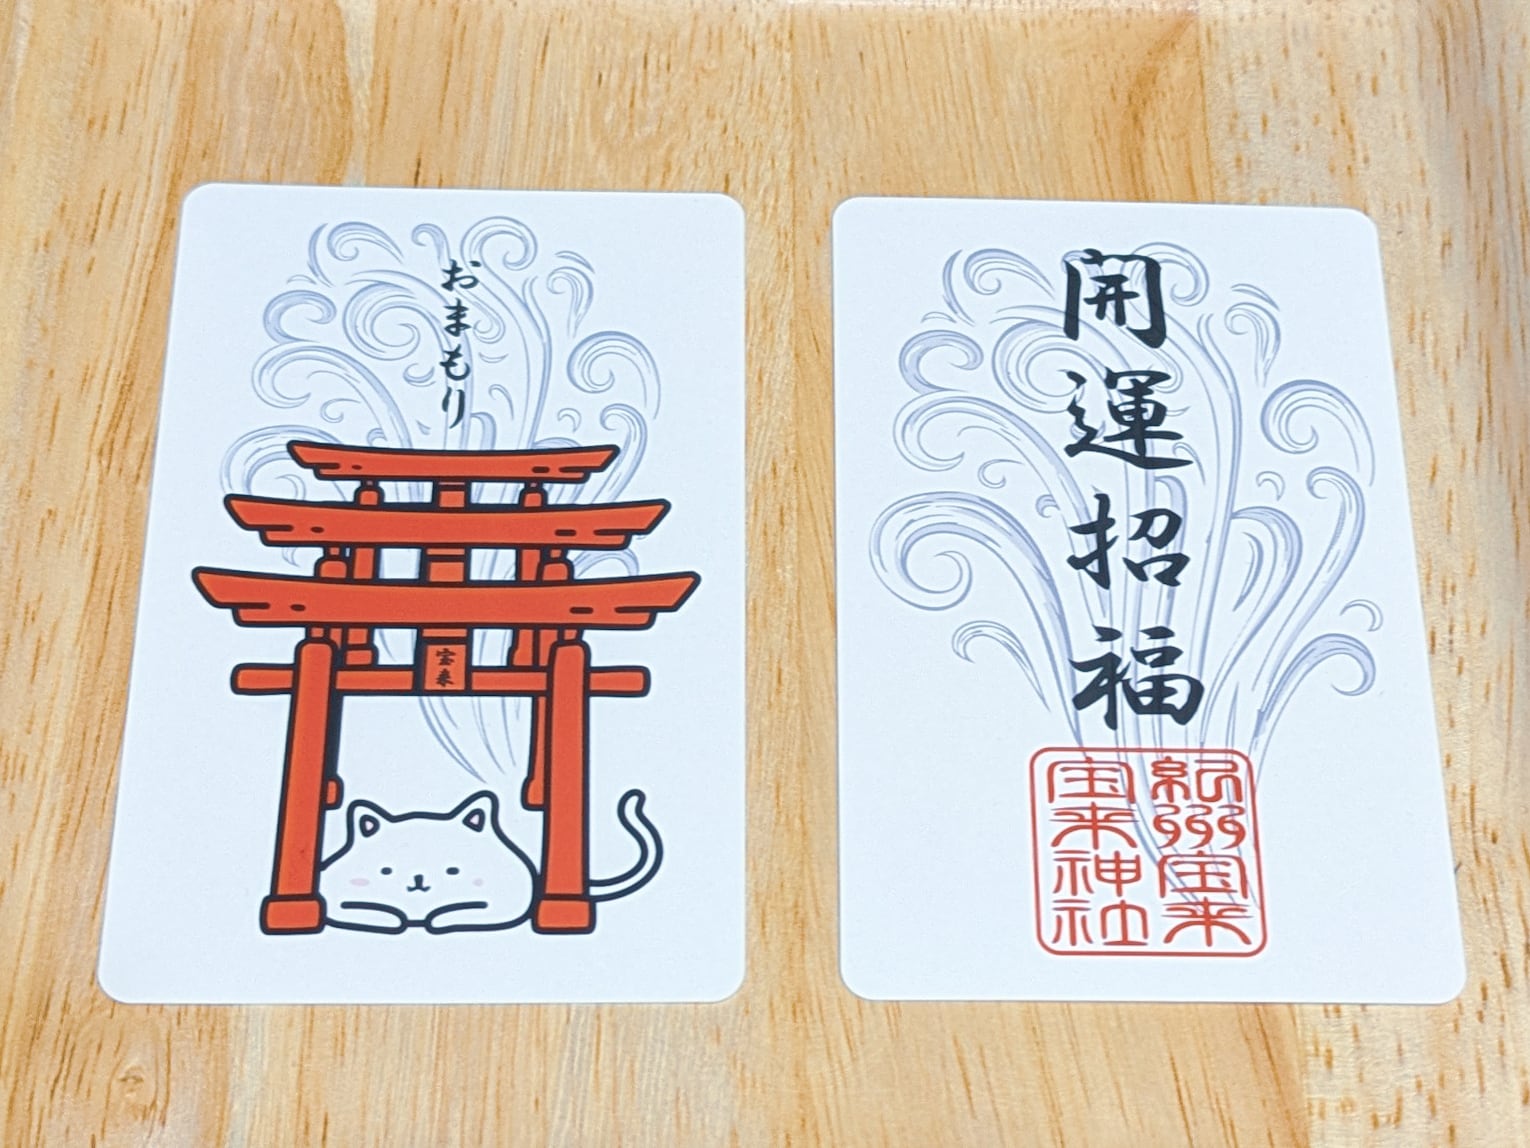 おまもり
宝来
開運招福
紀州宝来
宝来神社